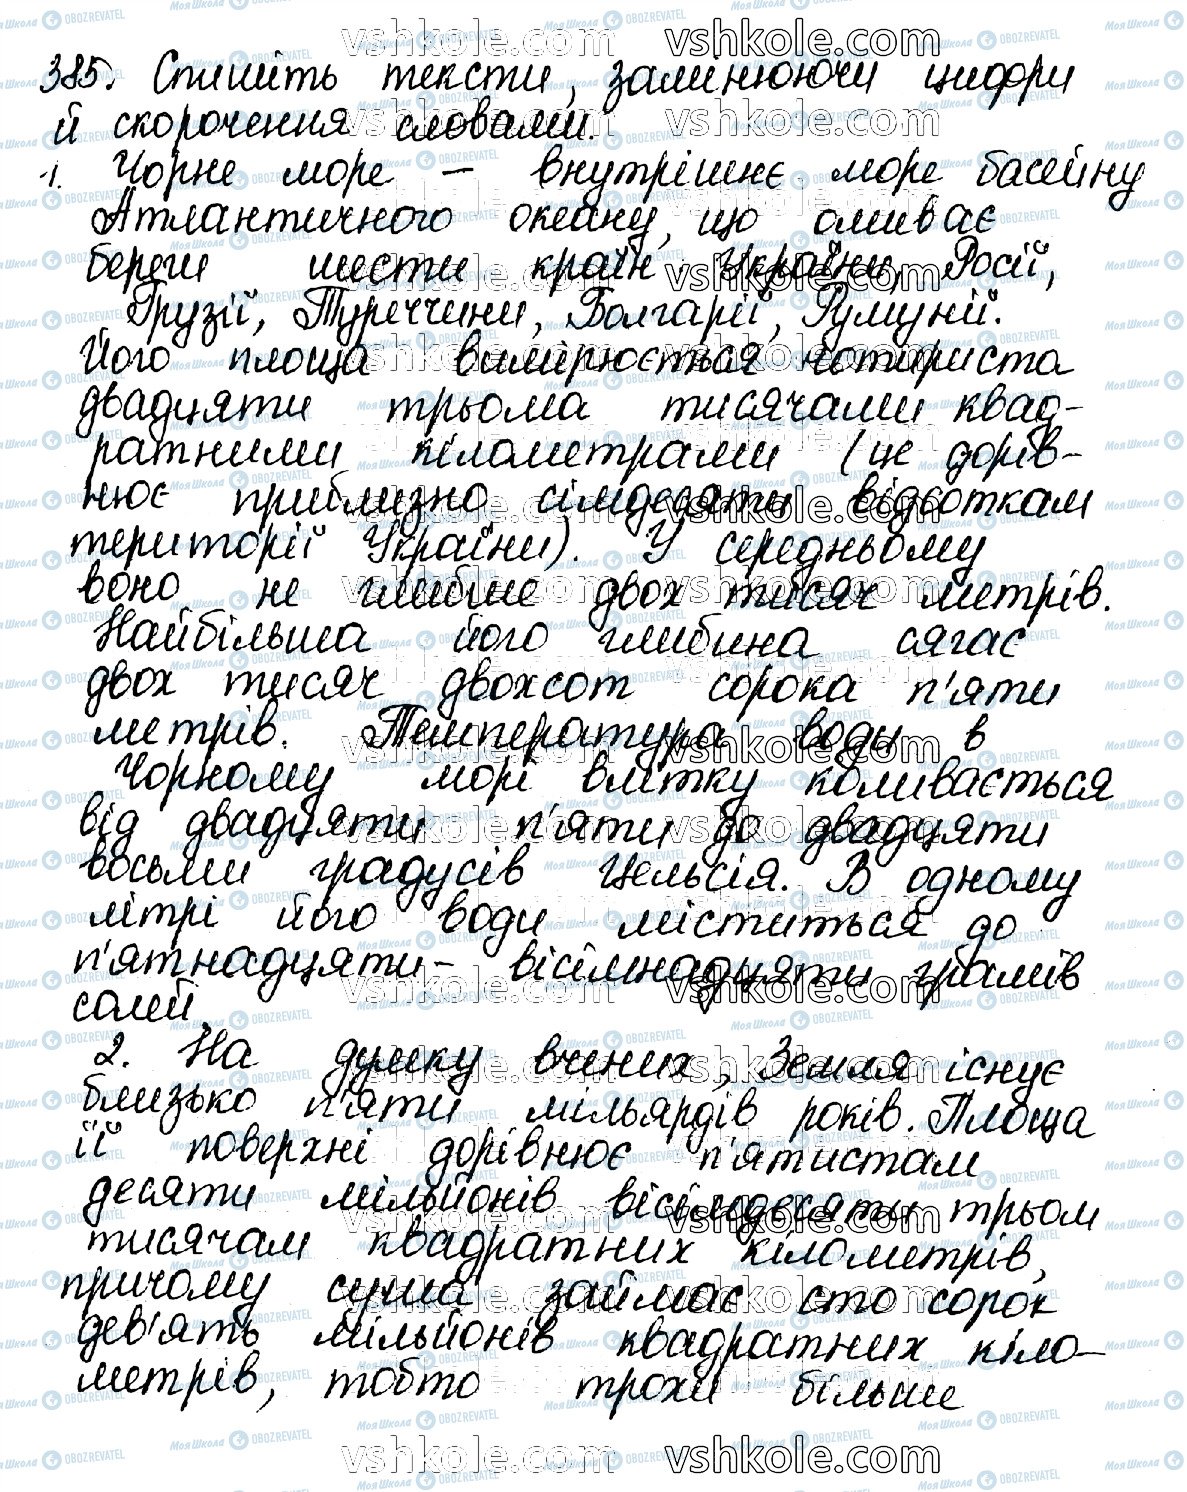 385. Спишіть тексти, замінюючи цифри
й скорочення словами.
1. Чорне море – внутрішнє море басейну
Атлантичного океану, що омиває
береги шести країн: України, Росії,
Грузії, Туреччини, Болгарії, Румунії.
Його площа вимірюється чотириста
двадцяти трьома тисячами квад-
ратними кілометрами (це дорів-
нює приблизно сімдесяти відсоткам
території України). У середньому
воно не глибше двох тисяч метрів.
Найбільша його глибина сягає
двох тисяч двохсот сорока п'яти
метрів. Температура води в
Чорному морі влітку коливається
від двадцяти п'яти до двадцяти
восьми градусів Цельсія. В одному
літрі його води міститься до
п'ятнадцяти – вісімнадцяти грамів
солей.
2. На думку вчених, Земля існує
близько п'яти мільярдів років. Площа
її поверхні дорівнює п'ятистам
десяти мільйонів вісімдесяти трьом
тисячам квадратних кілометрів,
причому суша займає сто сорок
дев'ять мільйонів квадратних кіло-
метрів, тобто трохи більше
vshkole.com
МояШкола OBOZREVATEL